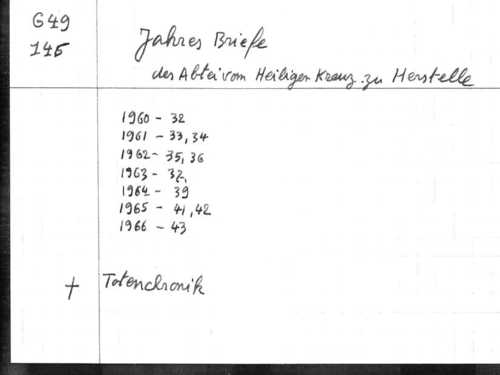 G49
145
Jahres Briefe
des Abtei vom Heiligen Kreuz zu Herstelle
1960 - 32
1961 - 33, 34
1962 - 35, 36
1963 - 37,
1964 - 39
1965 - 41, 42
1966 - 43
† Totenchronik